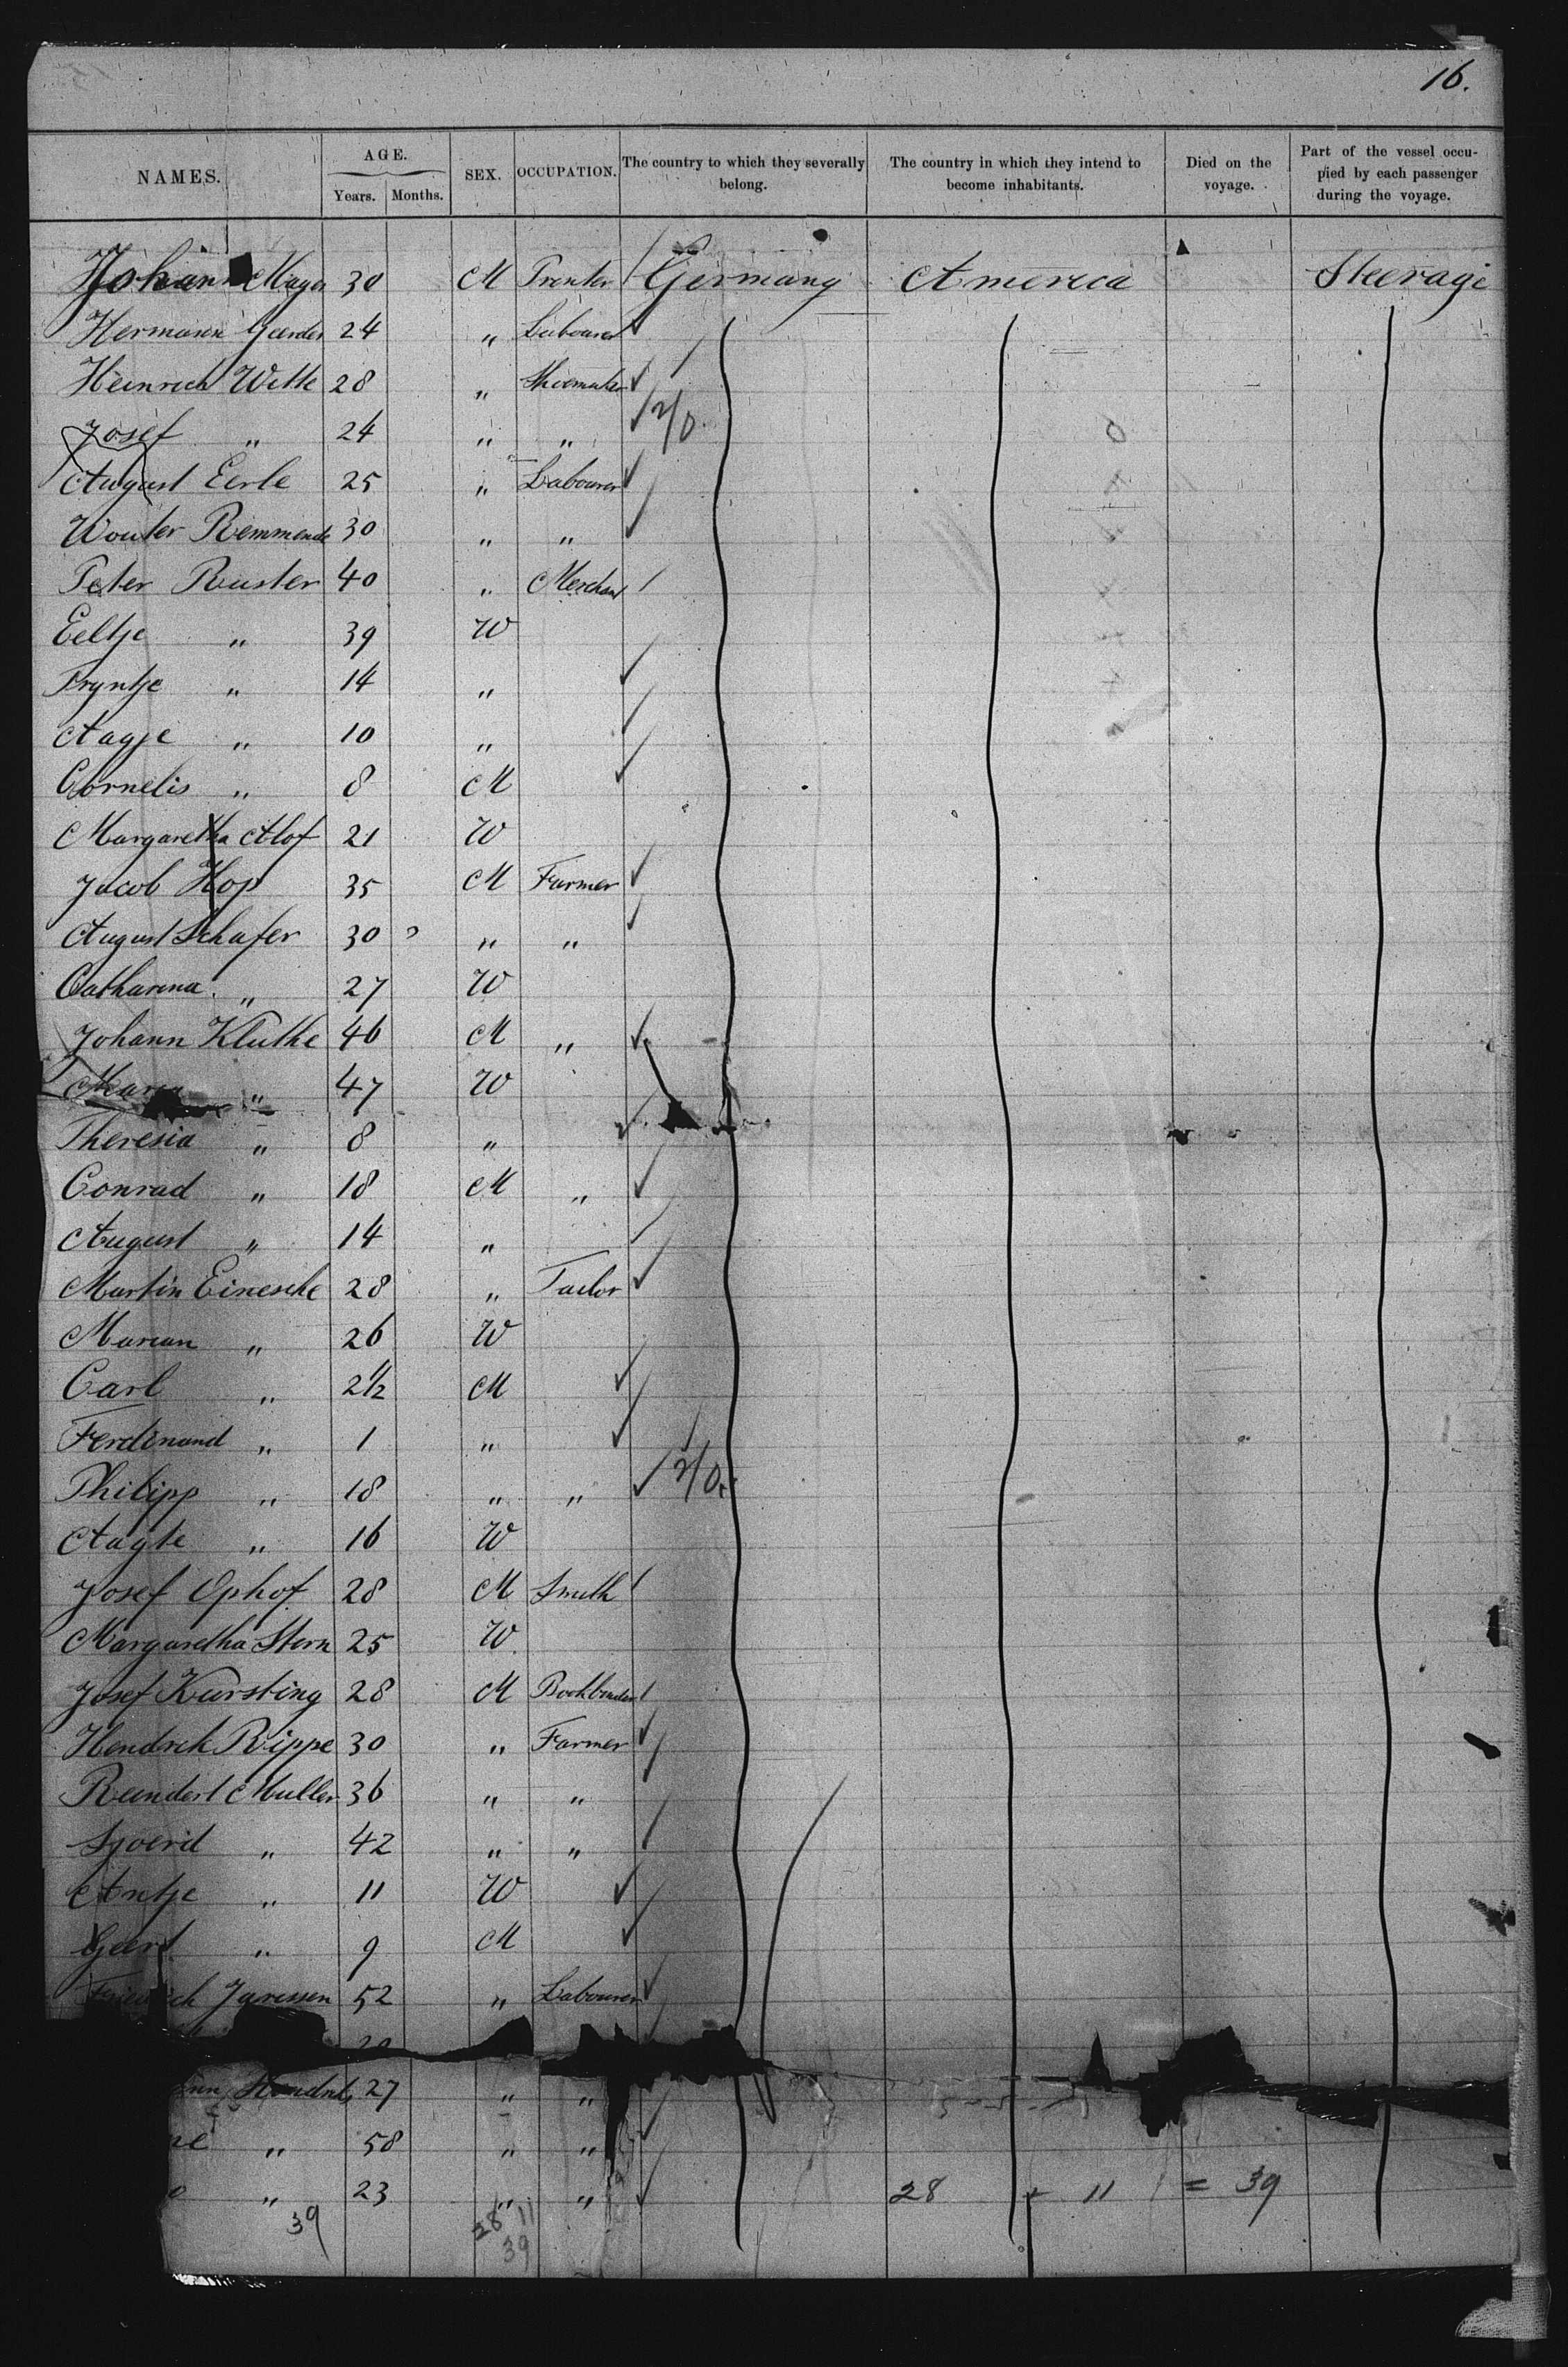 16.
NAMES. AGE. Years. Months. SEX. OCCUPATION. The country to which they severally belong. The country in which they intend to become inhabitants. Died on the voyage. Part of the vessel occupied by each passenger during the voyage.
Johann Mayer 30 M Printer Germany America Steerage
Hermann 24 " Labourer
Heinrich Witte 28 " Shoemaker
Josef " 24 " "
August Eerle 25 " Labourer
Wouter Remmende 30 " "
Peter Ruster 40 " Merchant
Eeltje " 39 W
Tryntje " 14 "
Aagje " 10 "
Cornelis " 8 M
Margaretha Alof 21 W
Jacob Hop 35 M Farmer
August Schafer 30 " "
Catharina " 27 W
Johann Kluthe 46 M "
Maria " 47 W
Theresia " 8 "
Conrad " 18 M "
August " 14 "
Martin Einesche 28 " Tailor
Marian " 26 W
Carl " 2 1/2 M
Ferdinand " 1 "
Philipp " 18 " "
Aagte " 16 W
Josef Ophof 28 M Smith
Margaretha Stern 25 W
Josef Kürsting 28 M Bookbinder
Hendrik Rippe 30 " Farmer
Reindert Muller 36 " "
Sjoerd " 42 " "
Antje " 11 W
Geert " 9 M
Friedrich Janssen 52 " Labourer
27 " "
" 58 " "
" 23 " " 28 + 11 = 39
39 28 11
39